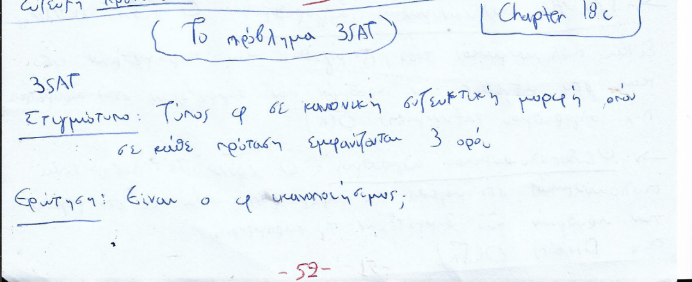 Το πρόβλημα 3SAT
Chapter 18c
3SAT
Στιγμιότυπο: Τύπος φ σε κανονική συζευκτική μορφή όπου
σε κάθε πρόταση εμφανίζονται 3 όροι
Ερώτηση: Είναι ο φ ικανοποιήσιμος;
-52-